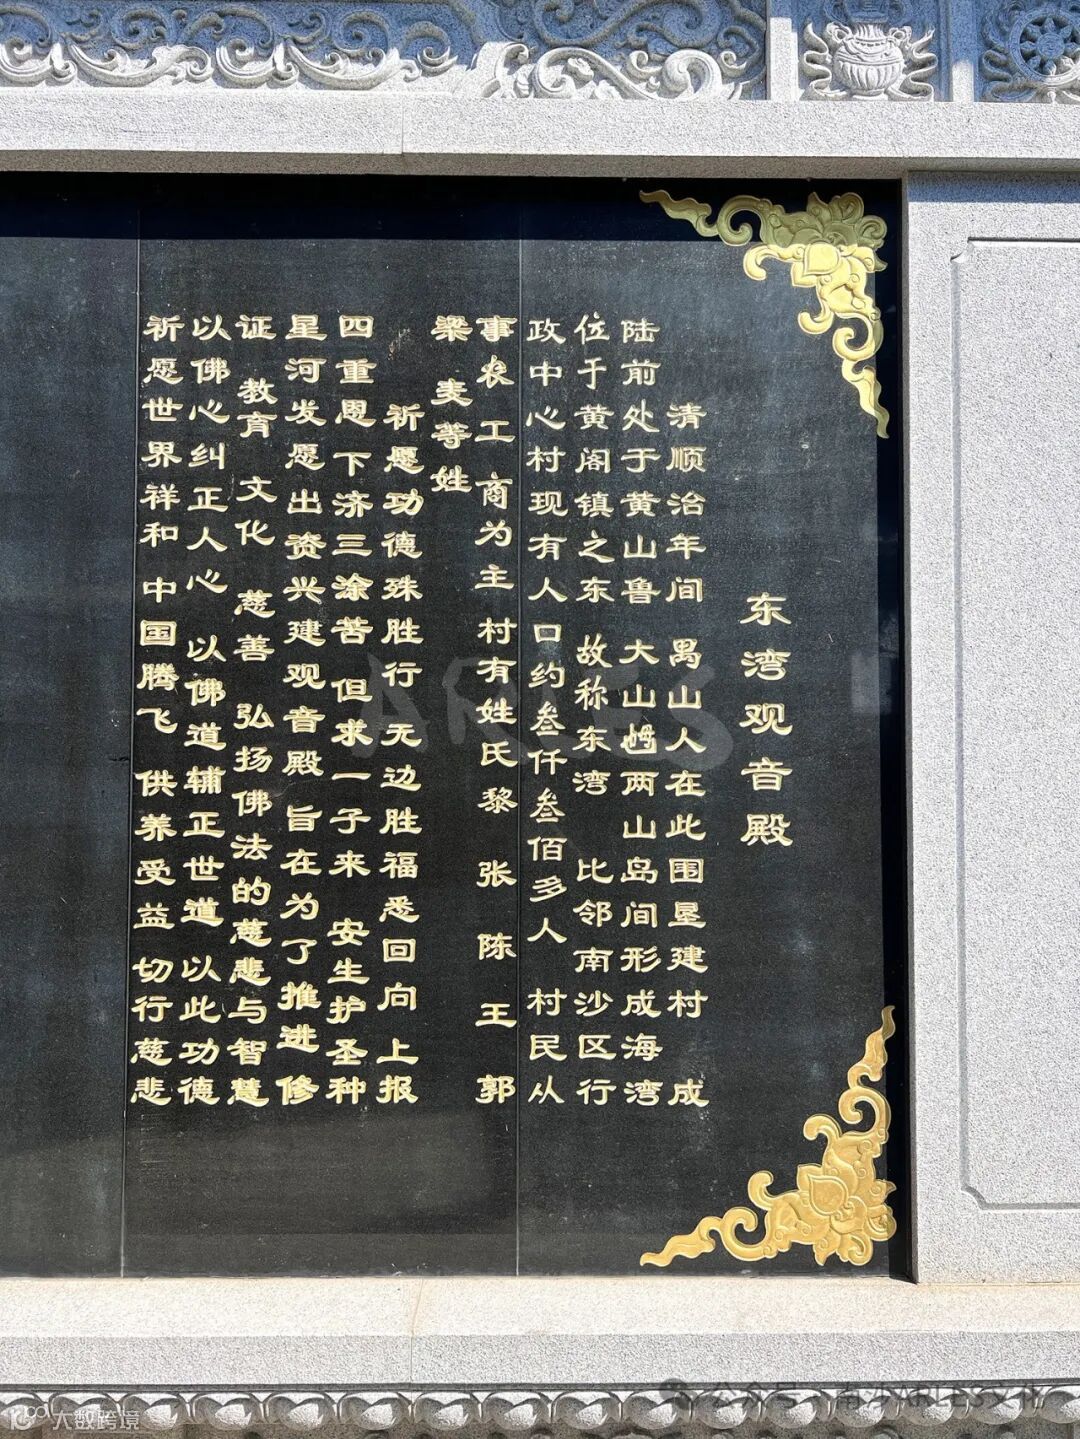 东湾观音殿
清顺治年间 禺山人在此围垦建村 成
陆前处于黄山鲁 大山乸两山岛间形成海湾
位于黄阁镇之东 故称东湾 比邻南沙区行
政中心村现有人口约叁仟叁佰多人 村民从
事农工商为主村有姓氏黎 张 陈 王 郭
梁 麦等姓
祈愿功德殊胜行 无边胜福悉回向 上报
四重恩 下济三涂苦 但求一子来 安生护圣种
星河发愿出资兴建观音殿旨在为了推进 修
证 教育 文化 慈善 弘扬佛法的慈悲与智慧
以佛心纠正人心 以佛道辅正世道 以此功德
祈愿世界祥和 中国腾飞 供养受益 切行慈悲
ARLES
公众号 · 南沙ARLES文化
大数跨境